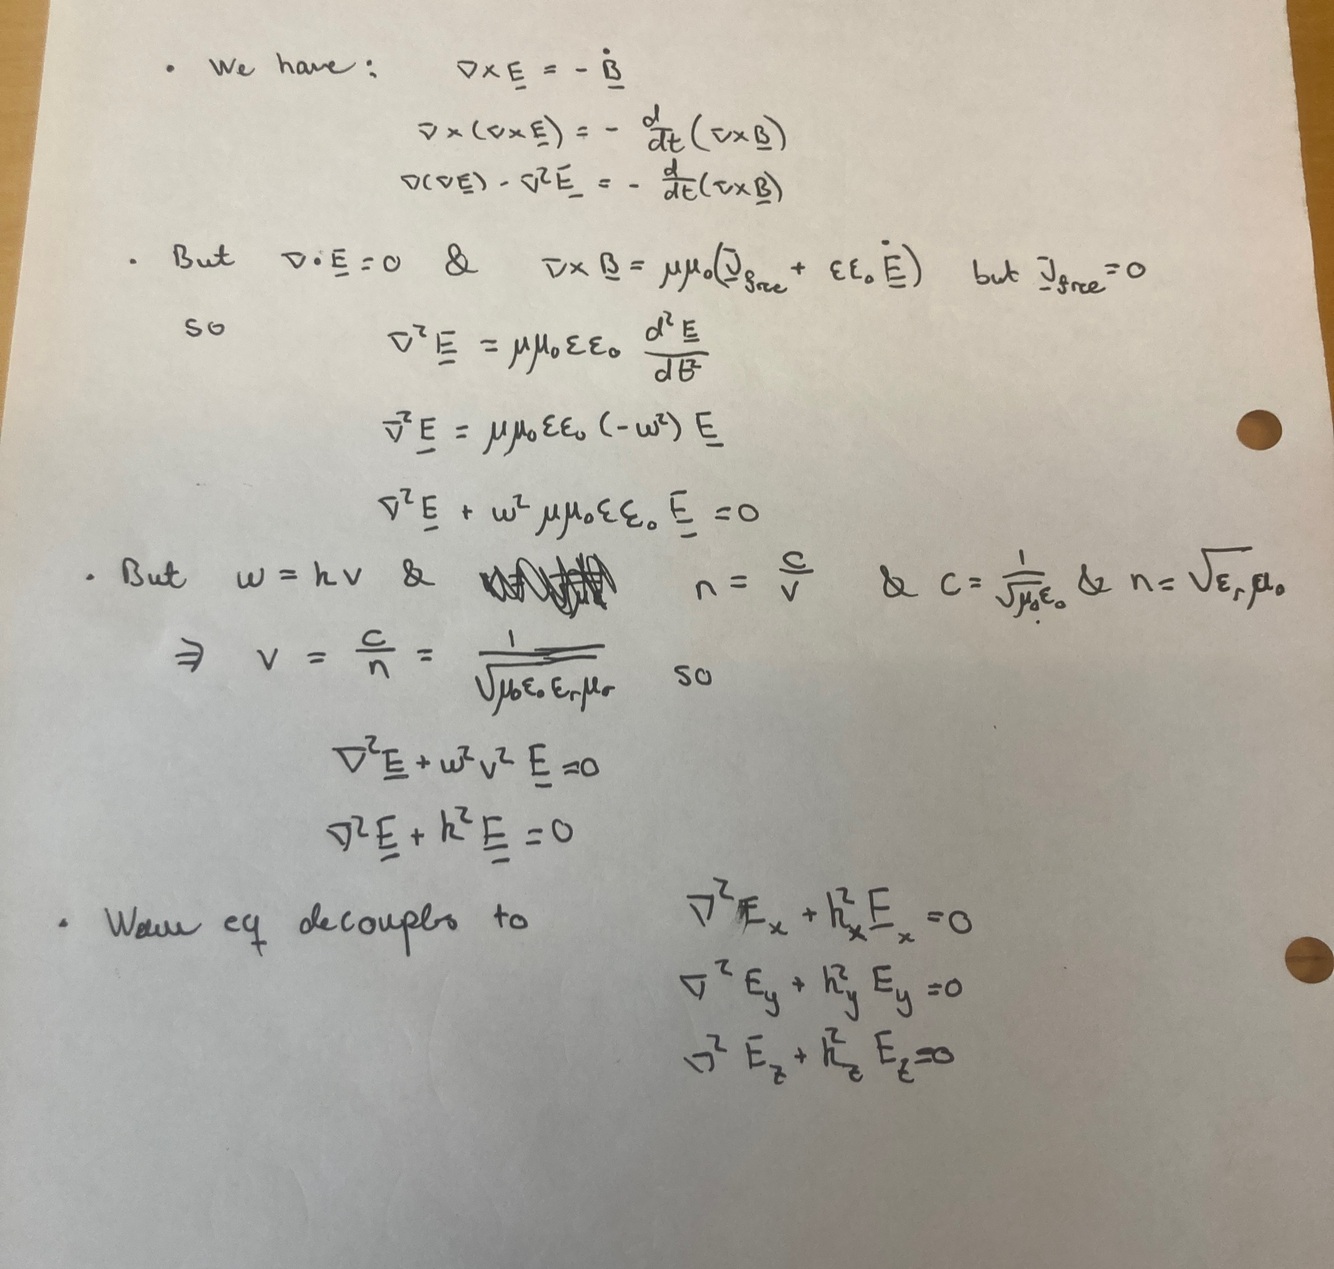 • We have: ∇×E̲ = - Ḃ̲
∇×(∇×E̲) = - d/dt (∇×B̲)
∇(∇E̲) - ∇²E̲ = - d/dt (∇×B̲)
• But ∇·E̲ = 0 & ∇×B̲ = μμ₀(J̲free + εε₀ Ė̲) but J̲free = 0
so ∇²E̲ = μμ₀εε₀ d²E̲/dt²
∇²E̲ = μμ₀εε₀ (-ω²) E̲
∇²E̲ + ω² μμ₀εε₀ E̲ = 0
• But ω = kv & n = c/v & c = 1/√μ₀ε₀ & n = √εᵣμ₀
⇒ v = c/n = 1/√μ₀ε₀εᵣμᵣ so
∇²E̲ + ω²v² E̲ = 0
∇²E̲ + k² E̲ = 0
• Wave eq decouples to ∇²Eₓ + kₓ² Eₓ = 0
∇² E_y + k_y² E_y = 0
∇² E_z + k_z² E_z = 0